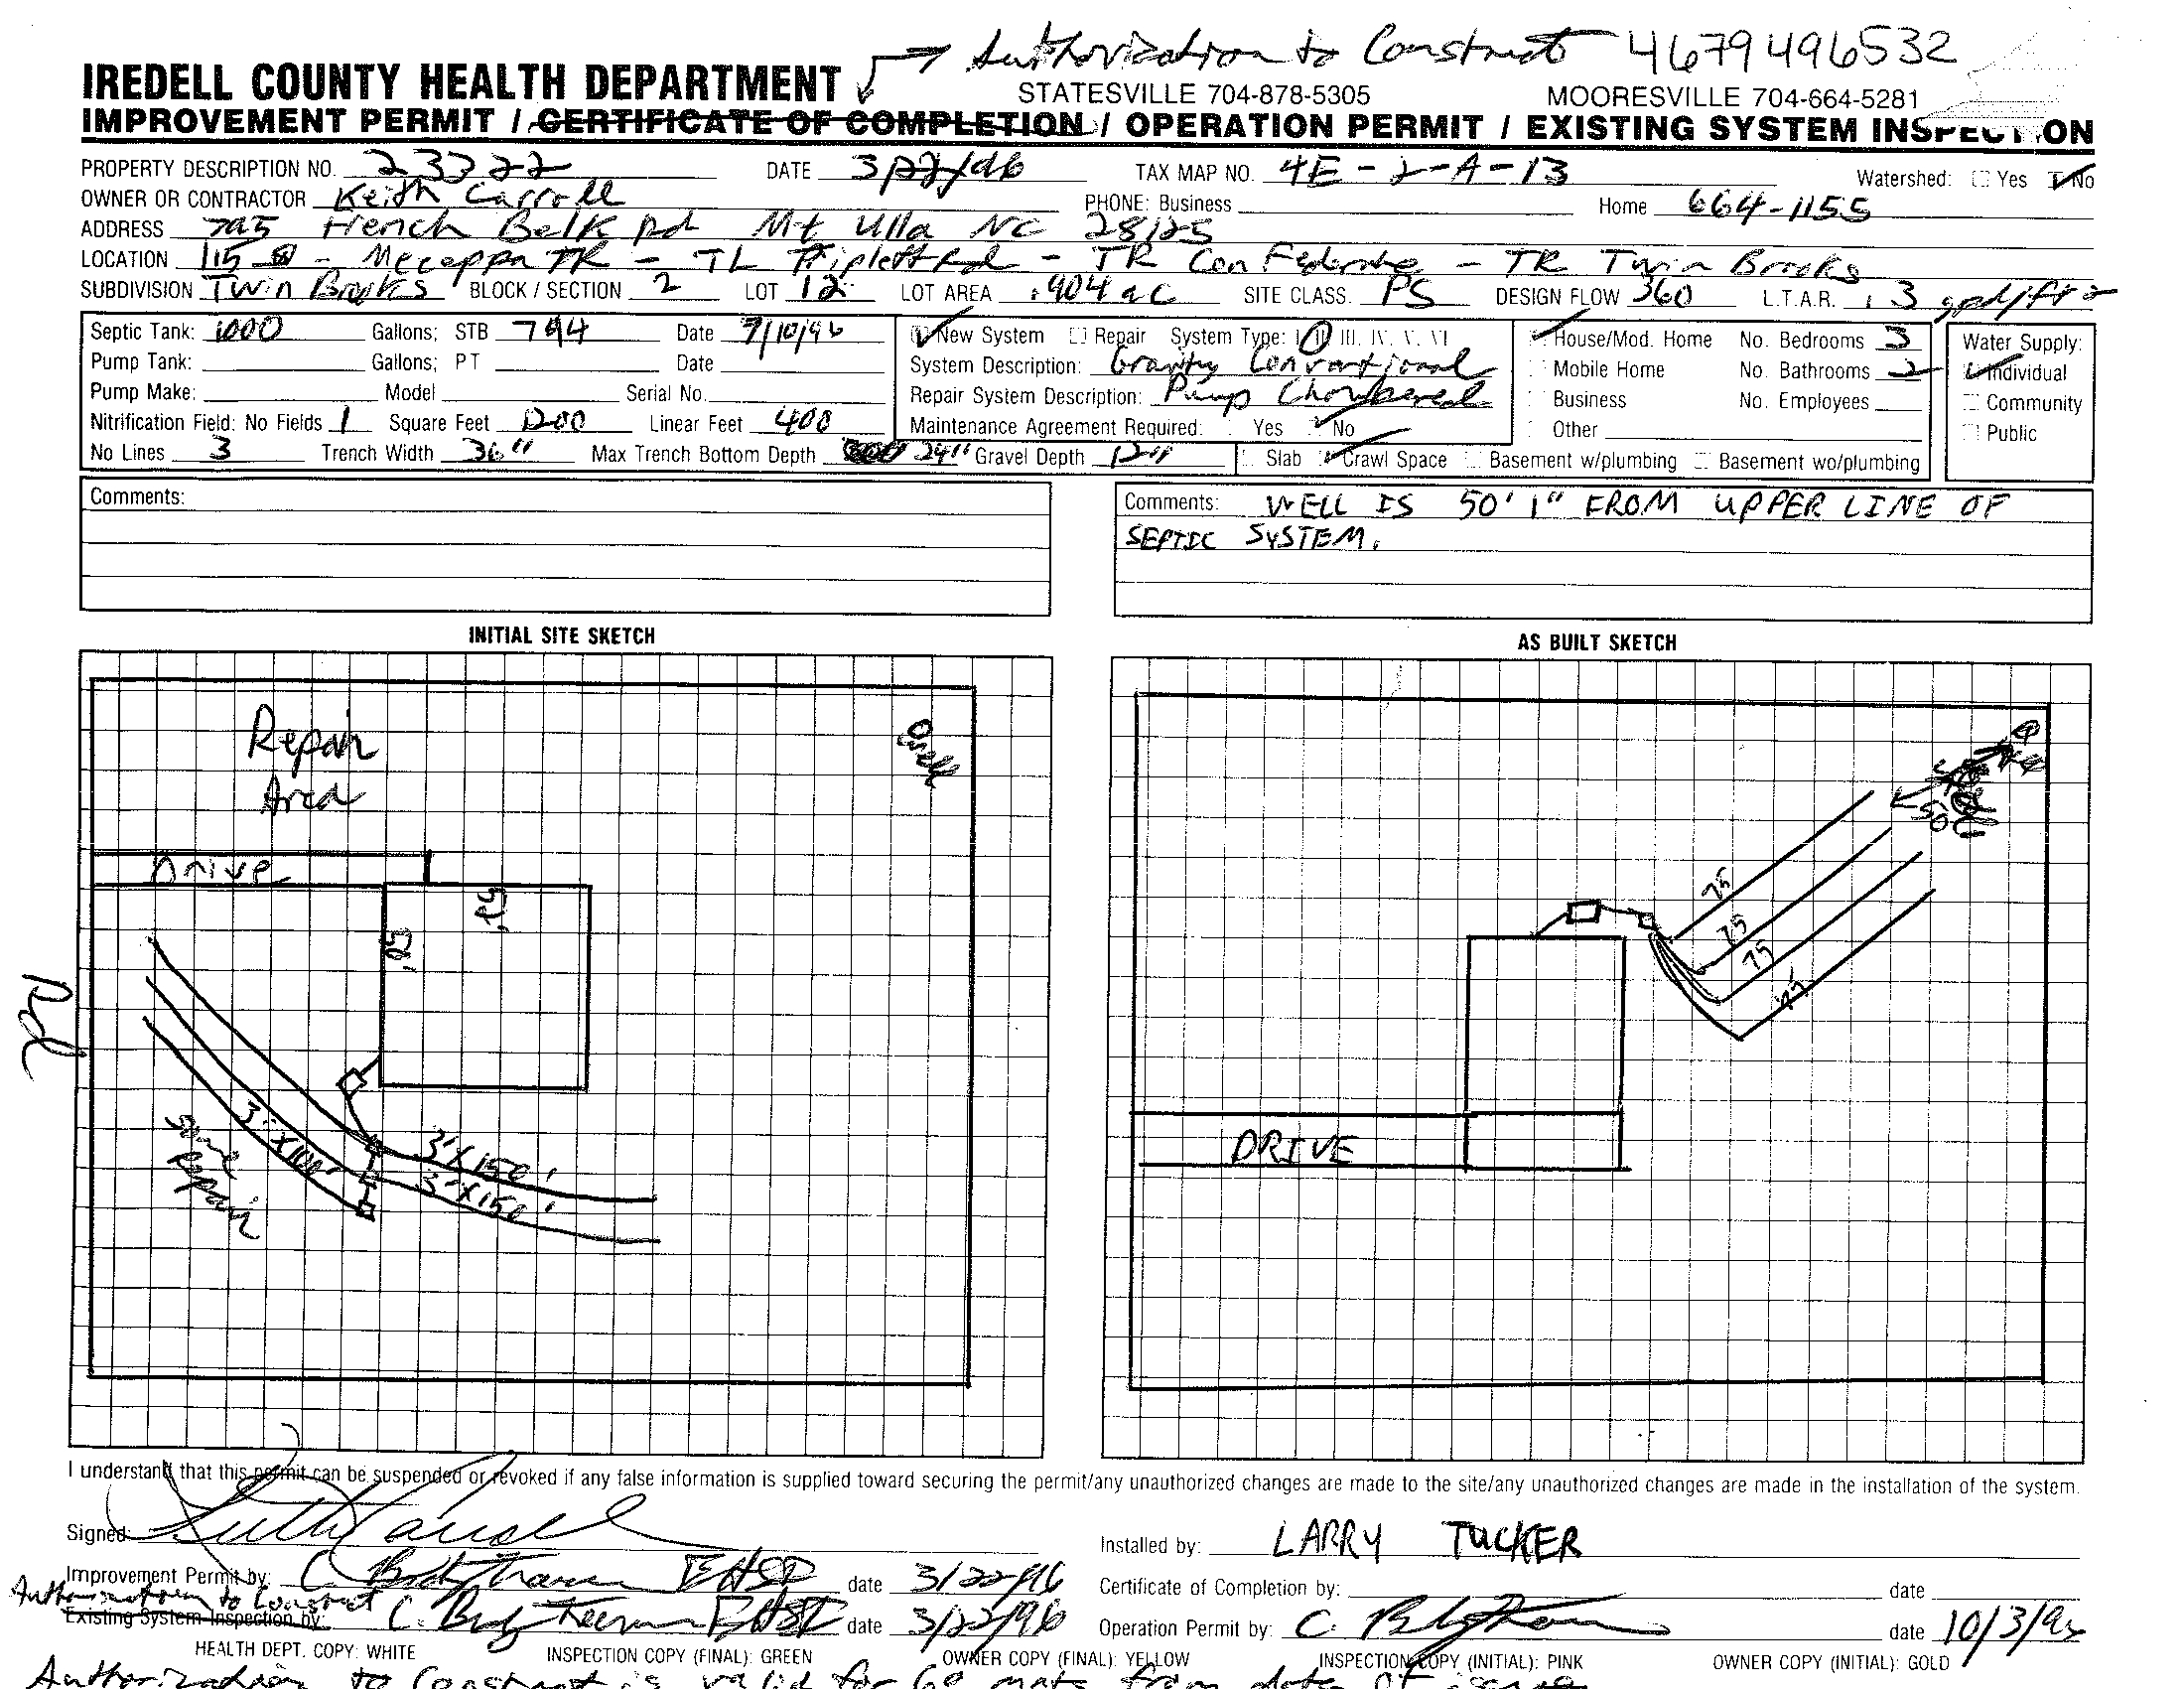 Authorization to Construct 4679496532
IREDELL COUNTY HEALTH DEPARTMENT
STATESVILLE 704-878-5305 MOORESVILLE 704-664-5281
IMPROVEMENT PERMIT / CERTIFICATE OF COMPLETION / OPERATION PERMIT / EXISTING SYSTEM INSPECTION
PROPERTY DESCRIPTION NO. 23322 DATE 3/22/96 TAX MAP NO. 4E-2-A-13 Watershed: Yes No
OWNER OR CONTRACTOR Keith Carroll PHONE: Business Home 664-1155
ADDRESS 725 French Belk Rd Mt Ulla NC 28125
LOCATION 115 - Mecoppa TR - TL Triplett Rd - TR Confederate - TR Twin Brooks
SUBDIVISION Twin Brooks BLOCK / SECTION 2 LOT 12 LOT AREA .904 ac SITE CLASS. PS DESIGN FLOW 360 L.T.A.R. .3 gpd/ft2
Septic Tank: 1000 Gallons; STB 744 Date 9/10/96 New System Repair System Type: I II III. IV. V. VI House/Mod. Home No. Bedrooms 3 Water Supply:
Pump Tank: Gallons; PT Date System Description: Gravity Conventional Mobile Home No. Bathrooms 2 Individual
Pump Make: Model Serial No. Repair System Description: Pump Chambered Business No. Employees Community
Nitrification Field: No Fields 1 Square Feet 1200 Linear Feet 400 Maintenance Agreement Required: Yes No Other Public
No Lines 3 Trench Width 36" Max Trench Bottom Depth 24" Gravel Depth 12" Slab Crawl Space Basement w/plumbing Basement wo/plumbing
Comments: Comments: WELL IS 50' 1" FROM UPPER LINE OF
SEPTIC SYSTEM.
INITIAL SITE SKETCH AS BUILT SKETCH
Repair
Area
well
Drive
50'
Rd
3'X100'
3'X150'
3'X150'
Some
Repair
50'
75
75
75
75'
DRIVE
I understand that this permit can be suspended or revoked if any false information is supplied toward securing the permit/any unauthorized changes are made to the site/any unauthorized changes are made in the installation of the system.
Signed: Installed by: LARRY TUCKER
Improvement Permit by: date 3/22/96 Certificate of Completion by: date
Authorization to Construct
Existing System Inspection by: date 3/22/96 Operation Permit by: date 10/3/96
HEALTH DEPT. COPY: WHITE INSPECTION COPY (FINAL): GREEN OWNER COPY (FINAL): YELLOW INSPECTION COPY (INITIAL): PINK OWNER COPY (INITIAL): GOLD
Authorization to Construct is valid for 60 mnts from date of issue